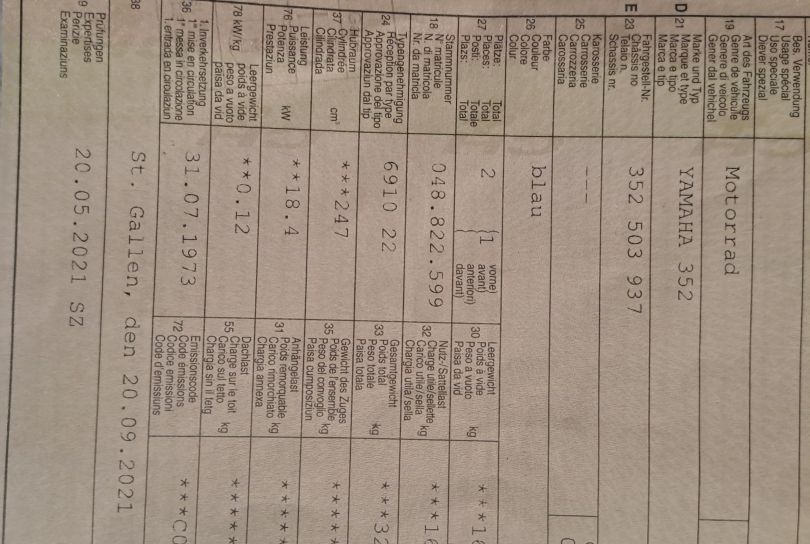 Bes. Verwendung
17 Usage spécial
Uso speciale
Diever spezial
Art des Fahrzeugs
19 Genre de véhicule
Genere di veicolo
Gener dal vehichel
Motorrad
D
Marke und Typ
21 Marque et type
Marca e tipo
Marca e tip
YAMAHA 352
E
Fahrgestell-Nr.
23 Châssis no
Telaio n.
Schassis nr.
352 503 937
Karosserie
25 Carrosserie
Carrozzeria
Carossaria
---
Farbe
26 Couleur
Colore
Colur
blau
Plätze: Total
27 Places: Total
Posti: Totale
Plazs: Total
2
(1
vorne)
avant)
anteriori)
davant)
Leergewicht
30 Poids à vide
Peso a vuoto kg
Paisa da vid
Stammnummer
18 N° matricule
N. di matricola
Nr. da matricla
048.822.599
Nutz-/Sattellast
32 Charge utile/sellette
Carico utile/sella kg
Chargia utila/sella
Typengenehmigung
24 Réception par type
Approvazione del tipo
Approvaziun dal tip
6910 22
Gesamtgewicht
33 Poids total
Peso totale kg
Paisa totala
Hubraum
37 Cylindrée
Cilindrata cm³
Cilindrada
***247
Gewicht des Zuges
35 Poids de l'ensemble
Peso del convoglio kg
Paisa cumposiziun
*****
Leistung
76 Puissance
Potenza kW
Prestaziun
**18.4
Anhängelast
31 Poids remorquable
Carico rimorchiato kg
Chargia annexa
*****
Leergewicht
78 kW/kg poids à vide
peso a vuoto
paisa da vid
**0.12
Dachlast
55 Charge sur le toit
Carico sul tetto kg
Chargia sin il tetg
*****
1. Inverkehrsetzung
36 1re mise en circulation
1a messa in circolazione
1. entrada en circulaziun
31.07.1973
Emissionscode
72 Code émissions
Codice emissioni
Code d'emissiuns
38
St. Gallen, den 20.09.2021
Prüfungen
Expertises
Perizie
Examinaziuns
20.05.2021 SZ